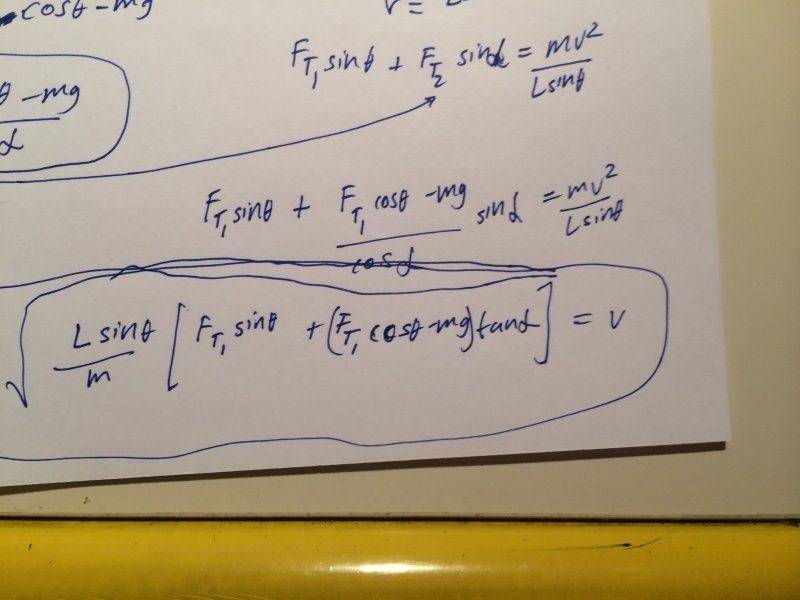 cosθ - mg
v =
F_T₁ sinθ + F_T₂ sinα = mv² / L sinθ
θ - mg / α
F_T₁ sinθ + (F_T₁ cosθ - mg) / cosα sinα = mv² / L sinθ
√ L sinθ / m [ F_T₁ sinθ + (F_T₁ cosθ - mg) tanα ] = v